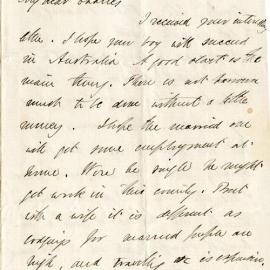 My dear Charles
I received your interesting
letter. I hope your boy will succeed
in Australia A good start is the
main thing. There is not however
much to be done without a little
money. I hope the married one
will get some employment at
home. Were he single he might
get work in this country. But
with a wife it is different as
lodgings for married people are
high, and travelling is expensive